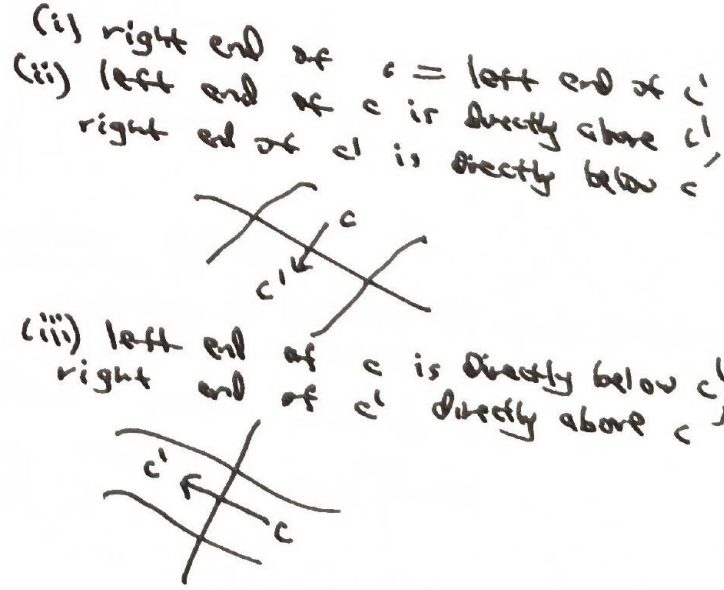 (i) right end of c = left end of c'
(ii) left end of c is directly above c'
right end of c' is directly below c
c
c'
(iii) left end of c is directly below c',
right end of c' directly above c
c'
c